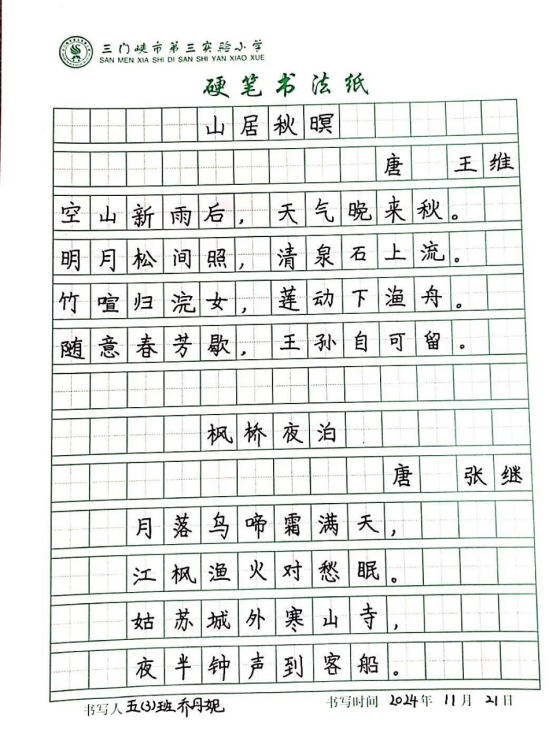 三门峡市第三实验小学
SAN MEN XIA SHI DI SAN SHI YAN XIAO XUE
硬笔书法纸
山居秋暝
唐 王维
空山新雨后，天气晚来秋。
明月松间照，清泉石上流。
竹喧归浣女，莲动下渔舟。
随意春芳歇，王孙自可留。
枫桥夜泊
唐 张继
月落鸟啼霜满天，
江枫渔火对愁眠。
姑苏城外寒山寺，
夜半钟声到客船。
书写人 五(3)班 乔丹妮 书写时间 2024年 11月 21日